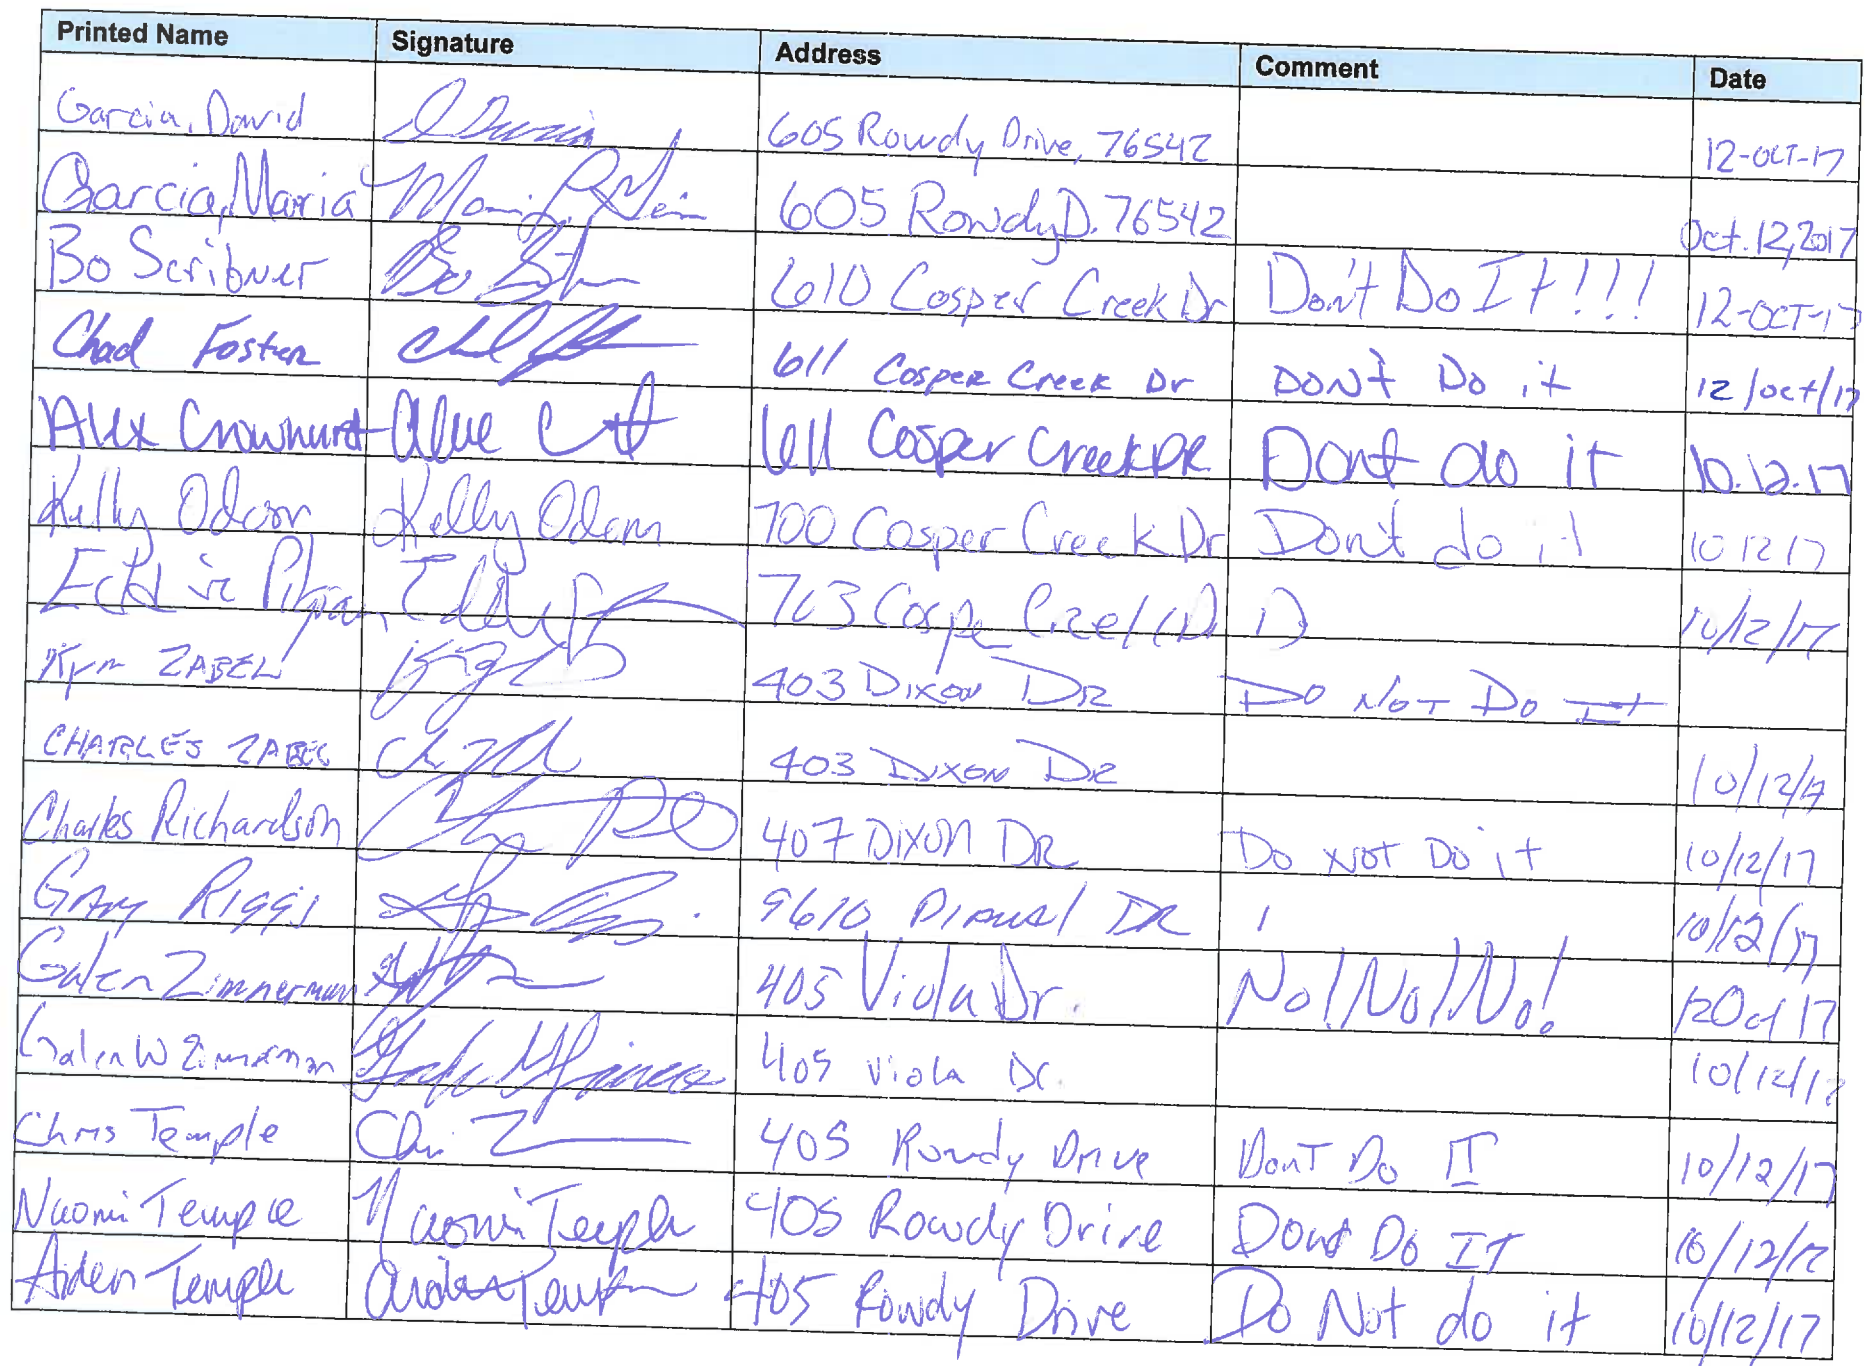 Printed Name Signature Address Comment Date
Garcia, David 605 Rowdy Drive, 76542 12-OCT-17
Garcia, Maria 605 Rowdy D. 76542 Oct. 12, 2017
Bo Scribner Bo 610 Cosper Creek Dr Don't Do It!!! 12-OCT-17
Chad Foster Chad 611 Cosper Creek Dr DONT Do it 12/oct/17
Alex Crowhurst 611 Cosper Creek DR Dont do it 10.12.17
Kelly Odom Kelly Odom 700 Cosper Creek Dr Don't do it 10 12 17
Eddie Pilgram Eddie 703 Cospe Creek Dr D 10/12/17
Kym ZABEL 403 DIXON DR DO NOT DO IT
CHARLES ZABEL 403 DIXON DR 10/12/17
Charles Richardson 407 DIXON DR DO NOT DO it 10/12/17
GARY RIGGS 9610 DR 10/12/17
Galen Zimmerman 405 Viola Dr. No! No! No! 12 Oct 17
Galen W Zimmerman 405 Viola Dr. 10/12/17
Chris Temple 405 Rowdy Drive DonT Do IT 10/12/17
Naomi Temple Naomi Temple 405 Rowdy Drive Dont Do IT 10/12/17
Aiden Temple Aiden Temple 405 Rowdy Drive Do Not do it 10/12/17